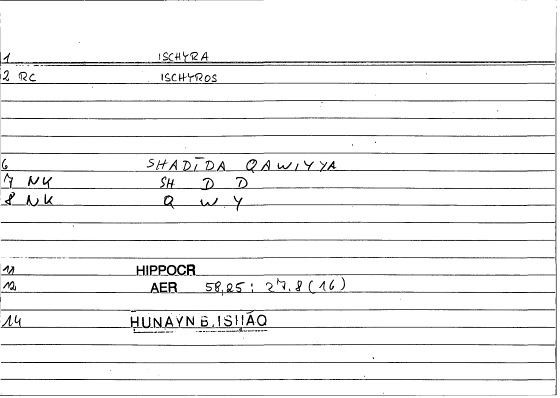 1 ISCHYRA
2 RC ISCHYROS
6 SHADĪDA QAWIYYA
7 NK SH D D
8 NK Q W Y
11 HIPPOCR
12 AER 58,25 : 27.8 (16)
14 HUNAYN B. ISHĀQ